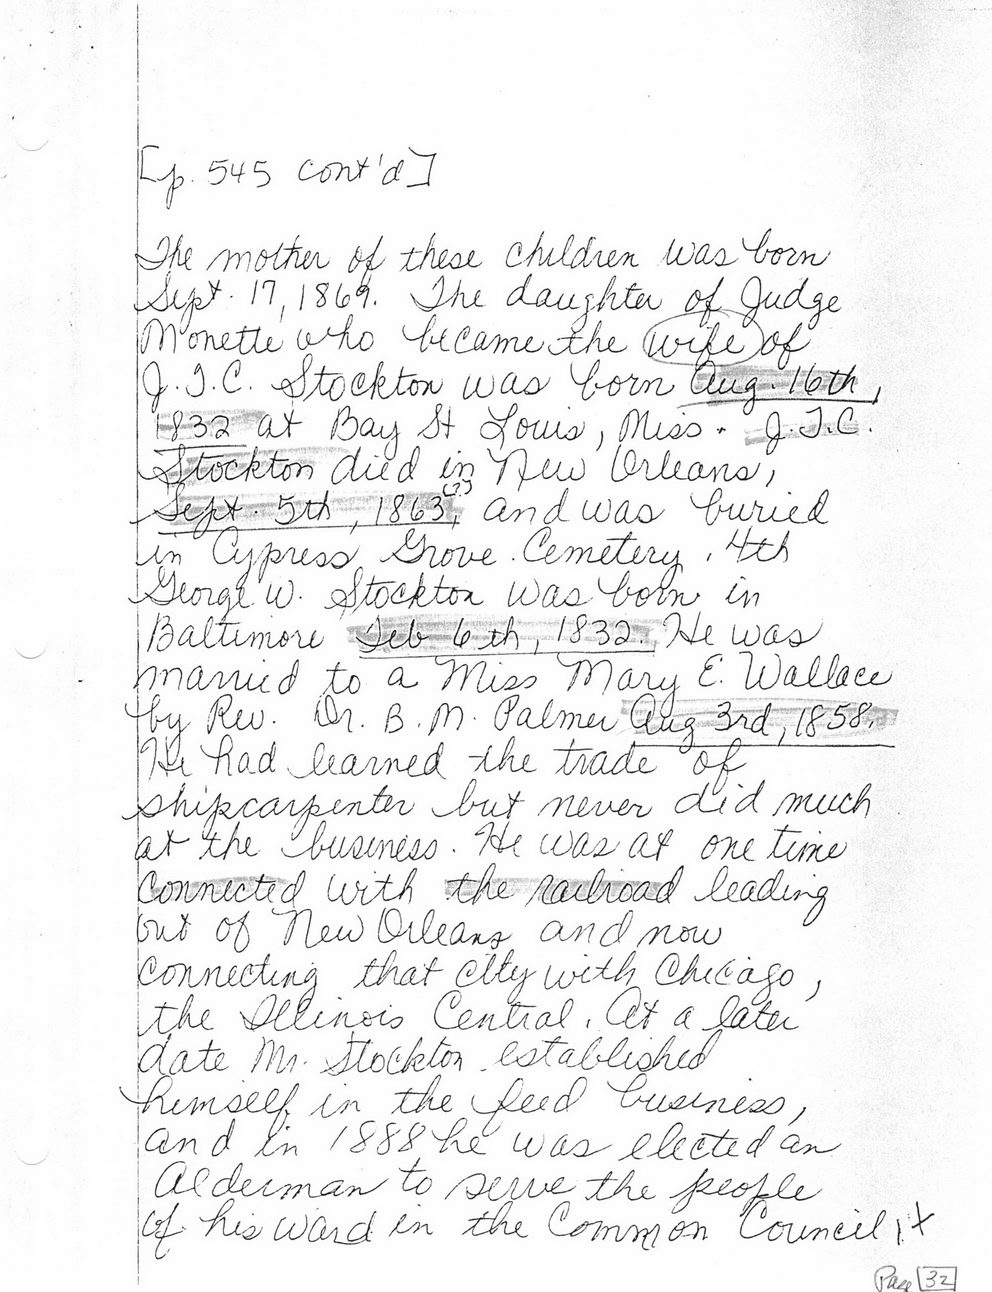 [p. 545 cont'd]
The mother of these children was born
Sept. 17, 1869. The daughter of Judge
Monette who became the wife of
J.T.C. Stockton was born Aug. 16th,
1832 at Bay St Louis, Miss. J.T.C.
Stockton died in New Orleans,
Sept. 5th, 1863, (?) and was buried
in Cypress Grove Cemetery. 4th
George W. Stockton was born in
Baltimore Feb 6th, 1832. He was
married to a Miss Mary E. Wallace
by Rev. Dr. B. M. Palmer Aug 3rd, 1858.
He had learned the trade of
shipcarpenter but never did much
at the business. He was at one time
connected with the railroad leading
out of New Orleans and now
connecting that city with Chicago,
the Illinois Central. At a later
date Mr. Stockton established
himself in the feed business,
and in 1888 he was elected an
Alderman to serve the people
of his ward in the Common Council, +
Page 32